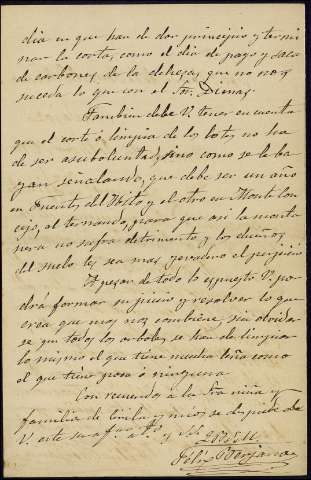 dia en que han de dar principio y termi
nar la corta, como el dia de pago y saca
de carbones, de la dehesa, que no nos
suceda lo que con el Sr. Dimas.
Tambien debe V. tener en cuenta
que el corte ó limpia de los lotes no ha
de ser a su boluntad, sino como se le ba
yan señalando, que debe ser un año
en Puente del y el otro en Monte Con
cejo, alternando, para que asi la monta
nera no sufra detrimento y los dueños
del suelo les sea mas el perjuicio
Apesar de todo lo espuesto V. po
drá formar su juicio y resolver lo que
crea que mas nos combiene, sin olvidar
se que todos los arboles se han de limpiar
lo mismo el que tiene mucha leña como
el que tiene poca ó ninguna.
Con recuerdos a la Sra niña y
familia de y mios se despide de
V. este su afmo. a. y S. S.
Q B S M
Felix Berjano